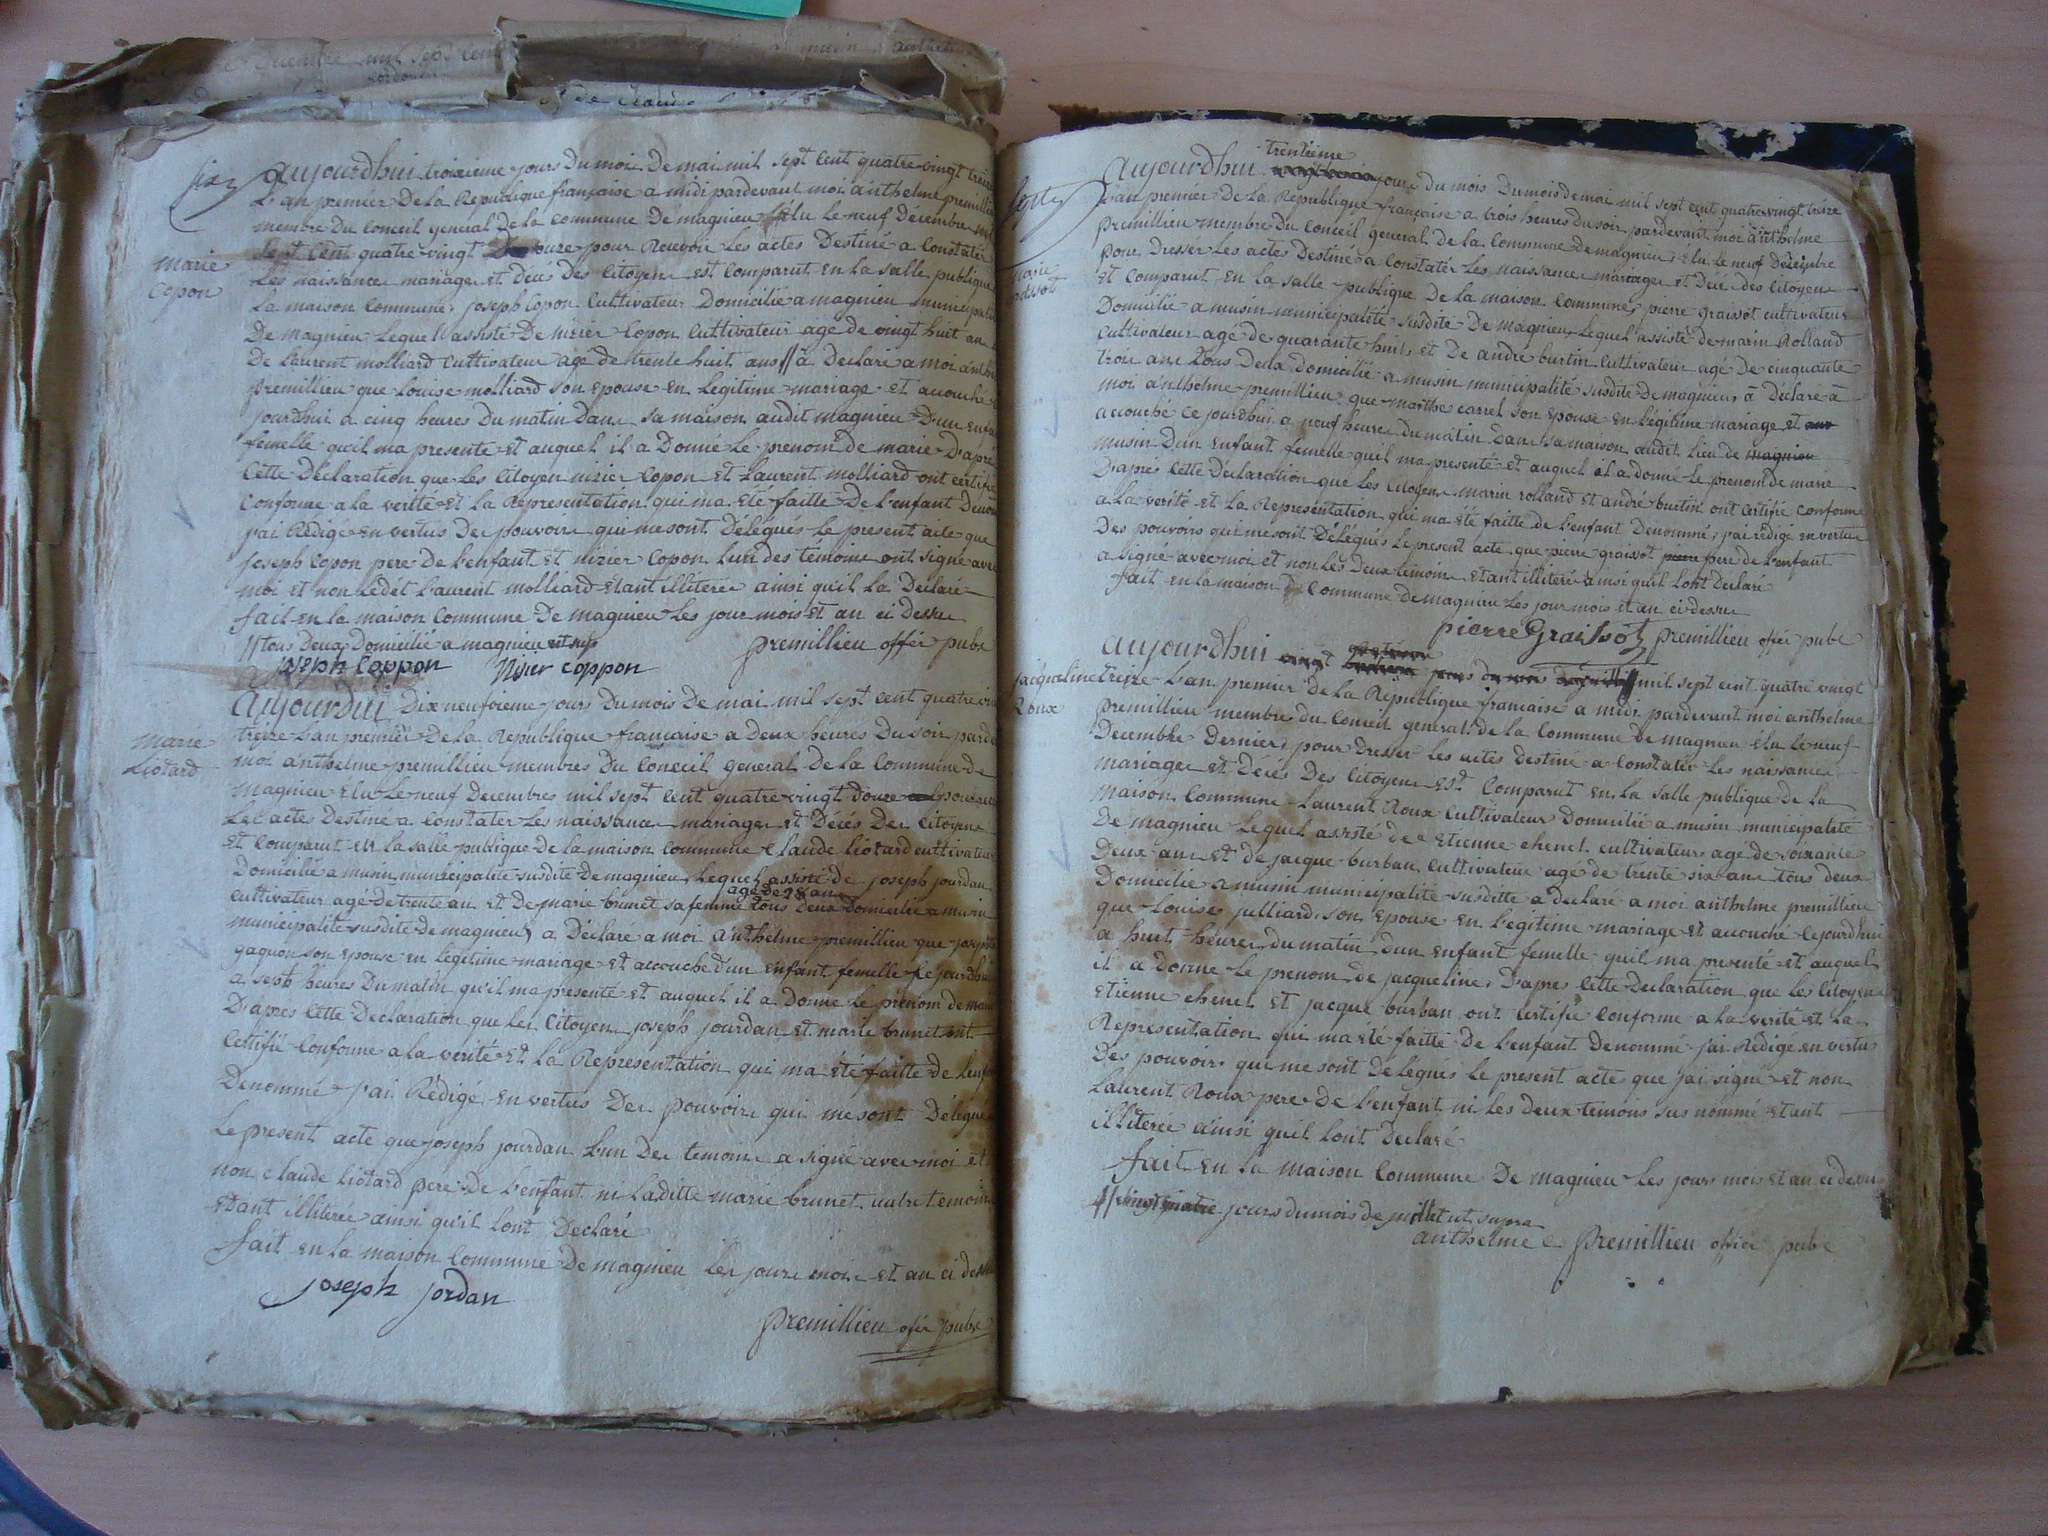 six
aujourdhui troisieme jours du moi De mai mil sept cent quatre vingt treize
L'an premier De la Republique française a midi pardevant moi anthelme premillieu
membre du Conceil general De la Commune De magnieu Elu le neuf Decembre mil
sept cent quatre vingt Douze pour Recevoir Les actes Destiné a Constater
Les naissance mariage et Décé Des Citoyens est Comparut En la salle publique
marie
Copon
La maison Commune, joseph Copon Cultivateur Domicilié a magnieu municipalité
De magnieu Lequel assisté De nizier Copon Cultivateur agé de vingt huit an
De Laurent molliard Cultivateur agé de trente huit ans // à Declaré a moi anthelme
premillieu que Louise molliard son Epouse En Légitime mariage Et accouché
jourdhui a cinq heures Du matin Dans sa maison audit magnieu D'un enfant
femelle qu'il ma presenté Et auquel il a Donné Le prenom de marie D'après
Cette Déclaration que Les Citoyen nizier Copon Et Laurent molliard ont certifié
Conforme a la verité Et la Representation qui ma Eté faitte De l'enfant Denommé
j'ai Rédigé En vertus De pouvoirs qui me sont Délégués Le present acte que
joseph Copon pere de l'enfant Et nizier Copon l'un des témoins ont signé avec
moi Et non Ledét Laurent molliard Etant illiterée ainsi qu'il la Declaré
fait En la maison Commune De magnieu Les jour mois Et an ci Dessu
// tous Deux Domicilié a magnieu
premillieu officr pube
joseph Coppon Nisier coppon
marie
Liotard
Aujourdui Dix neufvieme jours Du mois De mai mil sept cent quatre vingt
treize L'an premier De la Republique française a Deux heures Du soir parde
moi anthelme premillieu membres Du Conceil general De la Commune De
magnieu Elu Le neuf Decembres mil sept cent quatre vingt douze
Les actes Destiné a Constater Les naissance mariage Et Décés Des Citoyens
Et Comparut En la salle publique De la maison Commune Claude Liotard cultivateur
Domicilié a musin municipalité susdite De magnieu Lequel assisté de joseph jourdan
agé de 28 an
cultivateur agé De trente an Et De marie brunet sa femme tous Deux Domicilié a musin
municipalité susdite de magnieu, a Déclaré a moi anthelme premillieu que josephte
gagnon son Epouse En Legitime mariage Et accouché d'un enfant femelle ce jourdhui
a sept heures Du matin qu'il ma presenté Et auquel il a Donné Le prénom de marie
D'après Cette Declaration que Les Citoyen joseph jourdan Et marie brunet ont
Certifié Conforme a la verité Et La Representation qui ma Eté faitte de l'enfant
Denommé j'ai Rédigé En vertus Des pouvoirs qui me sont Délégués
Le present acte que joseph jourdan L'un Des temoins a signé avec moi Et
non Claude Liotard pere de l'enfant ni Laditte marie brunet autre temoins
Etant illiterée ainsi qu'il lont Declaré
fait En la maison Commune De magnieu Les jours mois Et an ci dessu
joseph jordan
premillieu ofér pube
sept
trentieme
Aujourdhui jours du mois Du mois de mai mil sept cent quatre vingt treize
L'an premier De la Republique française a trois heures Du soir pardevant moi anthelme
Premillieu membre Du Conceil general De la Commune De magnieu Elu Le neuf Décembre
pour Dresser Les actes Destiné a Constater Les naissance mariage Et Décé Des Citoyens
Et Comparut En la Salle publique De la maison Commune pierre graissot cultivateur
Domicilié a musin municipalité Susdite De magnieu, Lequel assisté de marin Rolland
Cultivateur agé de quarante huit, Et De andré burtin Cultivateur agé De cinquante
trois ans tous Deux domicilié a musin municipalité susdite De magnieu à Déclaré à
moi anthelme premillieu que marthe carrel son Epouse en Légitime mariage Et
accouché ce jourdhui a neuf heures Du matin Dans sa maison audit Lieu de magnieu
musin D'un Enfant femelle qu'il ma presenté Et auquel il a donné Le prenom De marie
D'après Cette Déclaration que Les citoyens marin rolland Et andré burtin ont certifié conforme
a la verité Et la Representation qui ma été faitte de l'enfant Dénommé, j'ai rédigé En vertu
Des pouvoirs qui me sont Délégués Le present acte que pierre graissot pere de l'enfant
a signé avec moi et non Les Deux temoins Etant illiteré ainsi qu'il Lont Declaré
fait En la maison De Commune De magnieu Les jour mois Et an ci dessu
pierre Graissot premillieu oficr pube
jacqueline
Roux
Aujourdhui vingt jours du mois mil sept cent quatre vingt
treize L'an premier de la Republique francaise a midi pardevant moi anthelme
premillieu membre du Conceil general De la Commune De magnieu Elu Le neuf
Decembre Dernier, pour Dresser Les actes Destiné a Constater Les naissance
mariage Et Décés Des Citoyens Est Comparut En la salle publique de la
maison Commune Laurent Roux Cultivateur Domicilié a musin municipalité
De magnieu Lequel assisté De Etienne chenet cultivateur agé de soixante
Deux ans Et de jacque burban Cultivateur agé de trente six ans tous deux
Domicilié a musin municipalité susditte a déclaré a moi anthelme premillieu
que Louise julliard son Epouse En Legitime mariage Et accouché cejourdhui
a huit heures du matin d'un Enfant femelle qu'il ma presenté Et auquel
il a Donné Le prenom de jacqueline, D'apres Cette Declaration que les citoyens
Etienne chenet Et jacque burban ont Certifié Conforme a la verité Et la
Representation qui ma été faitte De l'enfant Denommé j'ai Rédigé en vertus
Des pouvoirs qui me sont délégués Le present actes que j'ai signé Et non
Laurent Roux pere de l'enfant ni Les deux temoins sus nommé Etant
illiterée ainsi qu'il lont Declaré
fait En la maison Commune De magnieu Les jours mois Et an ci dessu
// vingt quatre jours du mois de juillet ut supra
anthelme premillieu officr pube